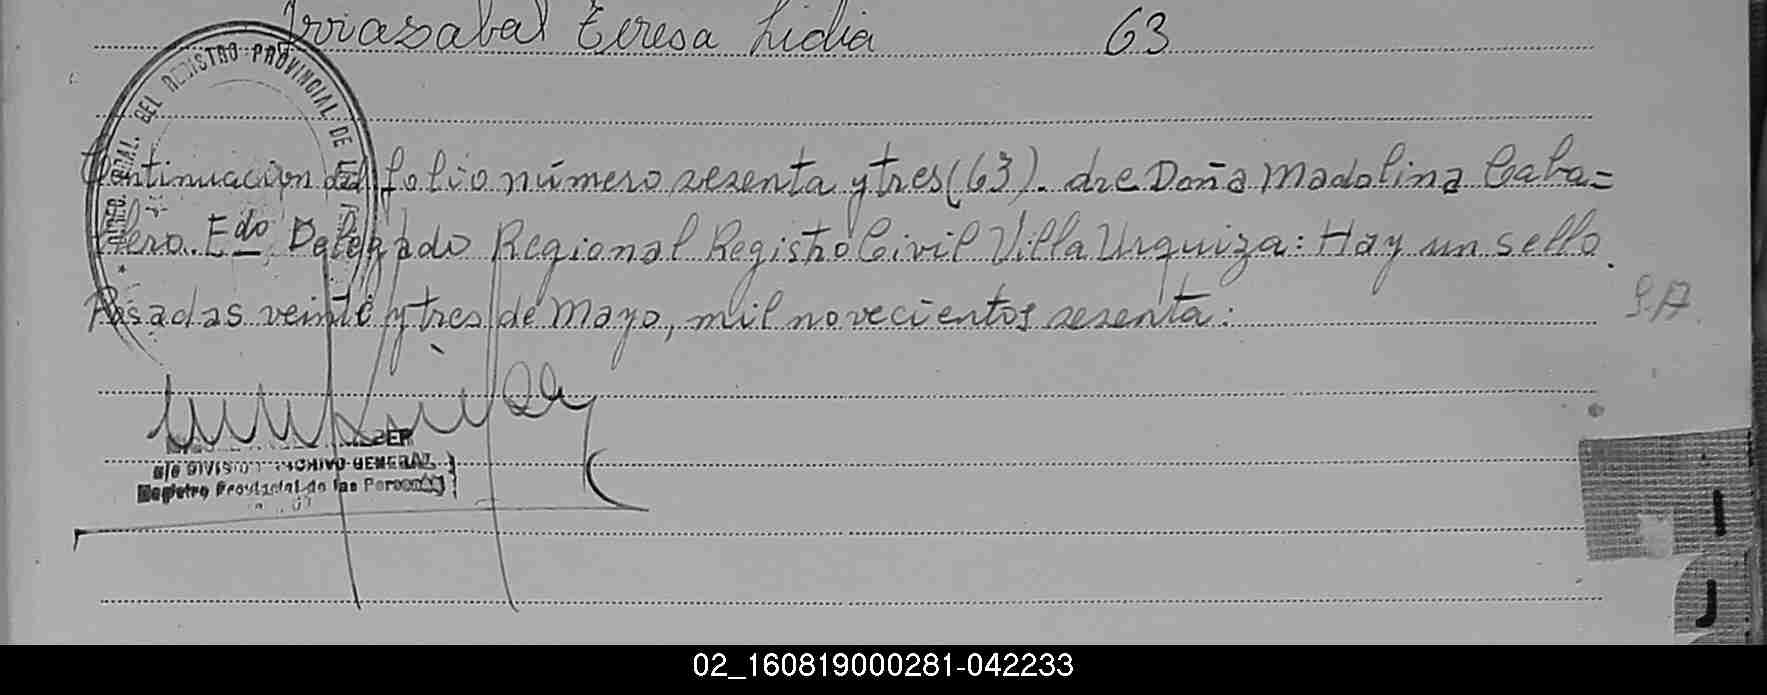 Irriazabal Teresa Lidia 63
DEL REGISTRO PROVINCIAL DE
Continuación del folio número sesenta y tres (63). de Doña Madolina Caba=
llero. Edo. Delegado Regional Registro Civil Villa Urquiza: Hay un sello.
Posadas veinte y tres de Mayo, mil novecientos sesenta:
S.A.
DIVISION ARCHIVO GENERAL
Registro Provincial de las Personas
I
J
02_160819000281-042233